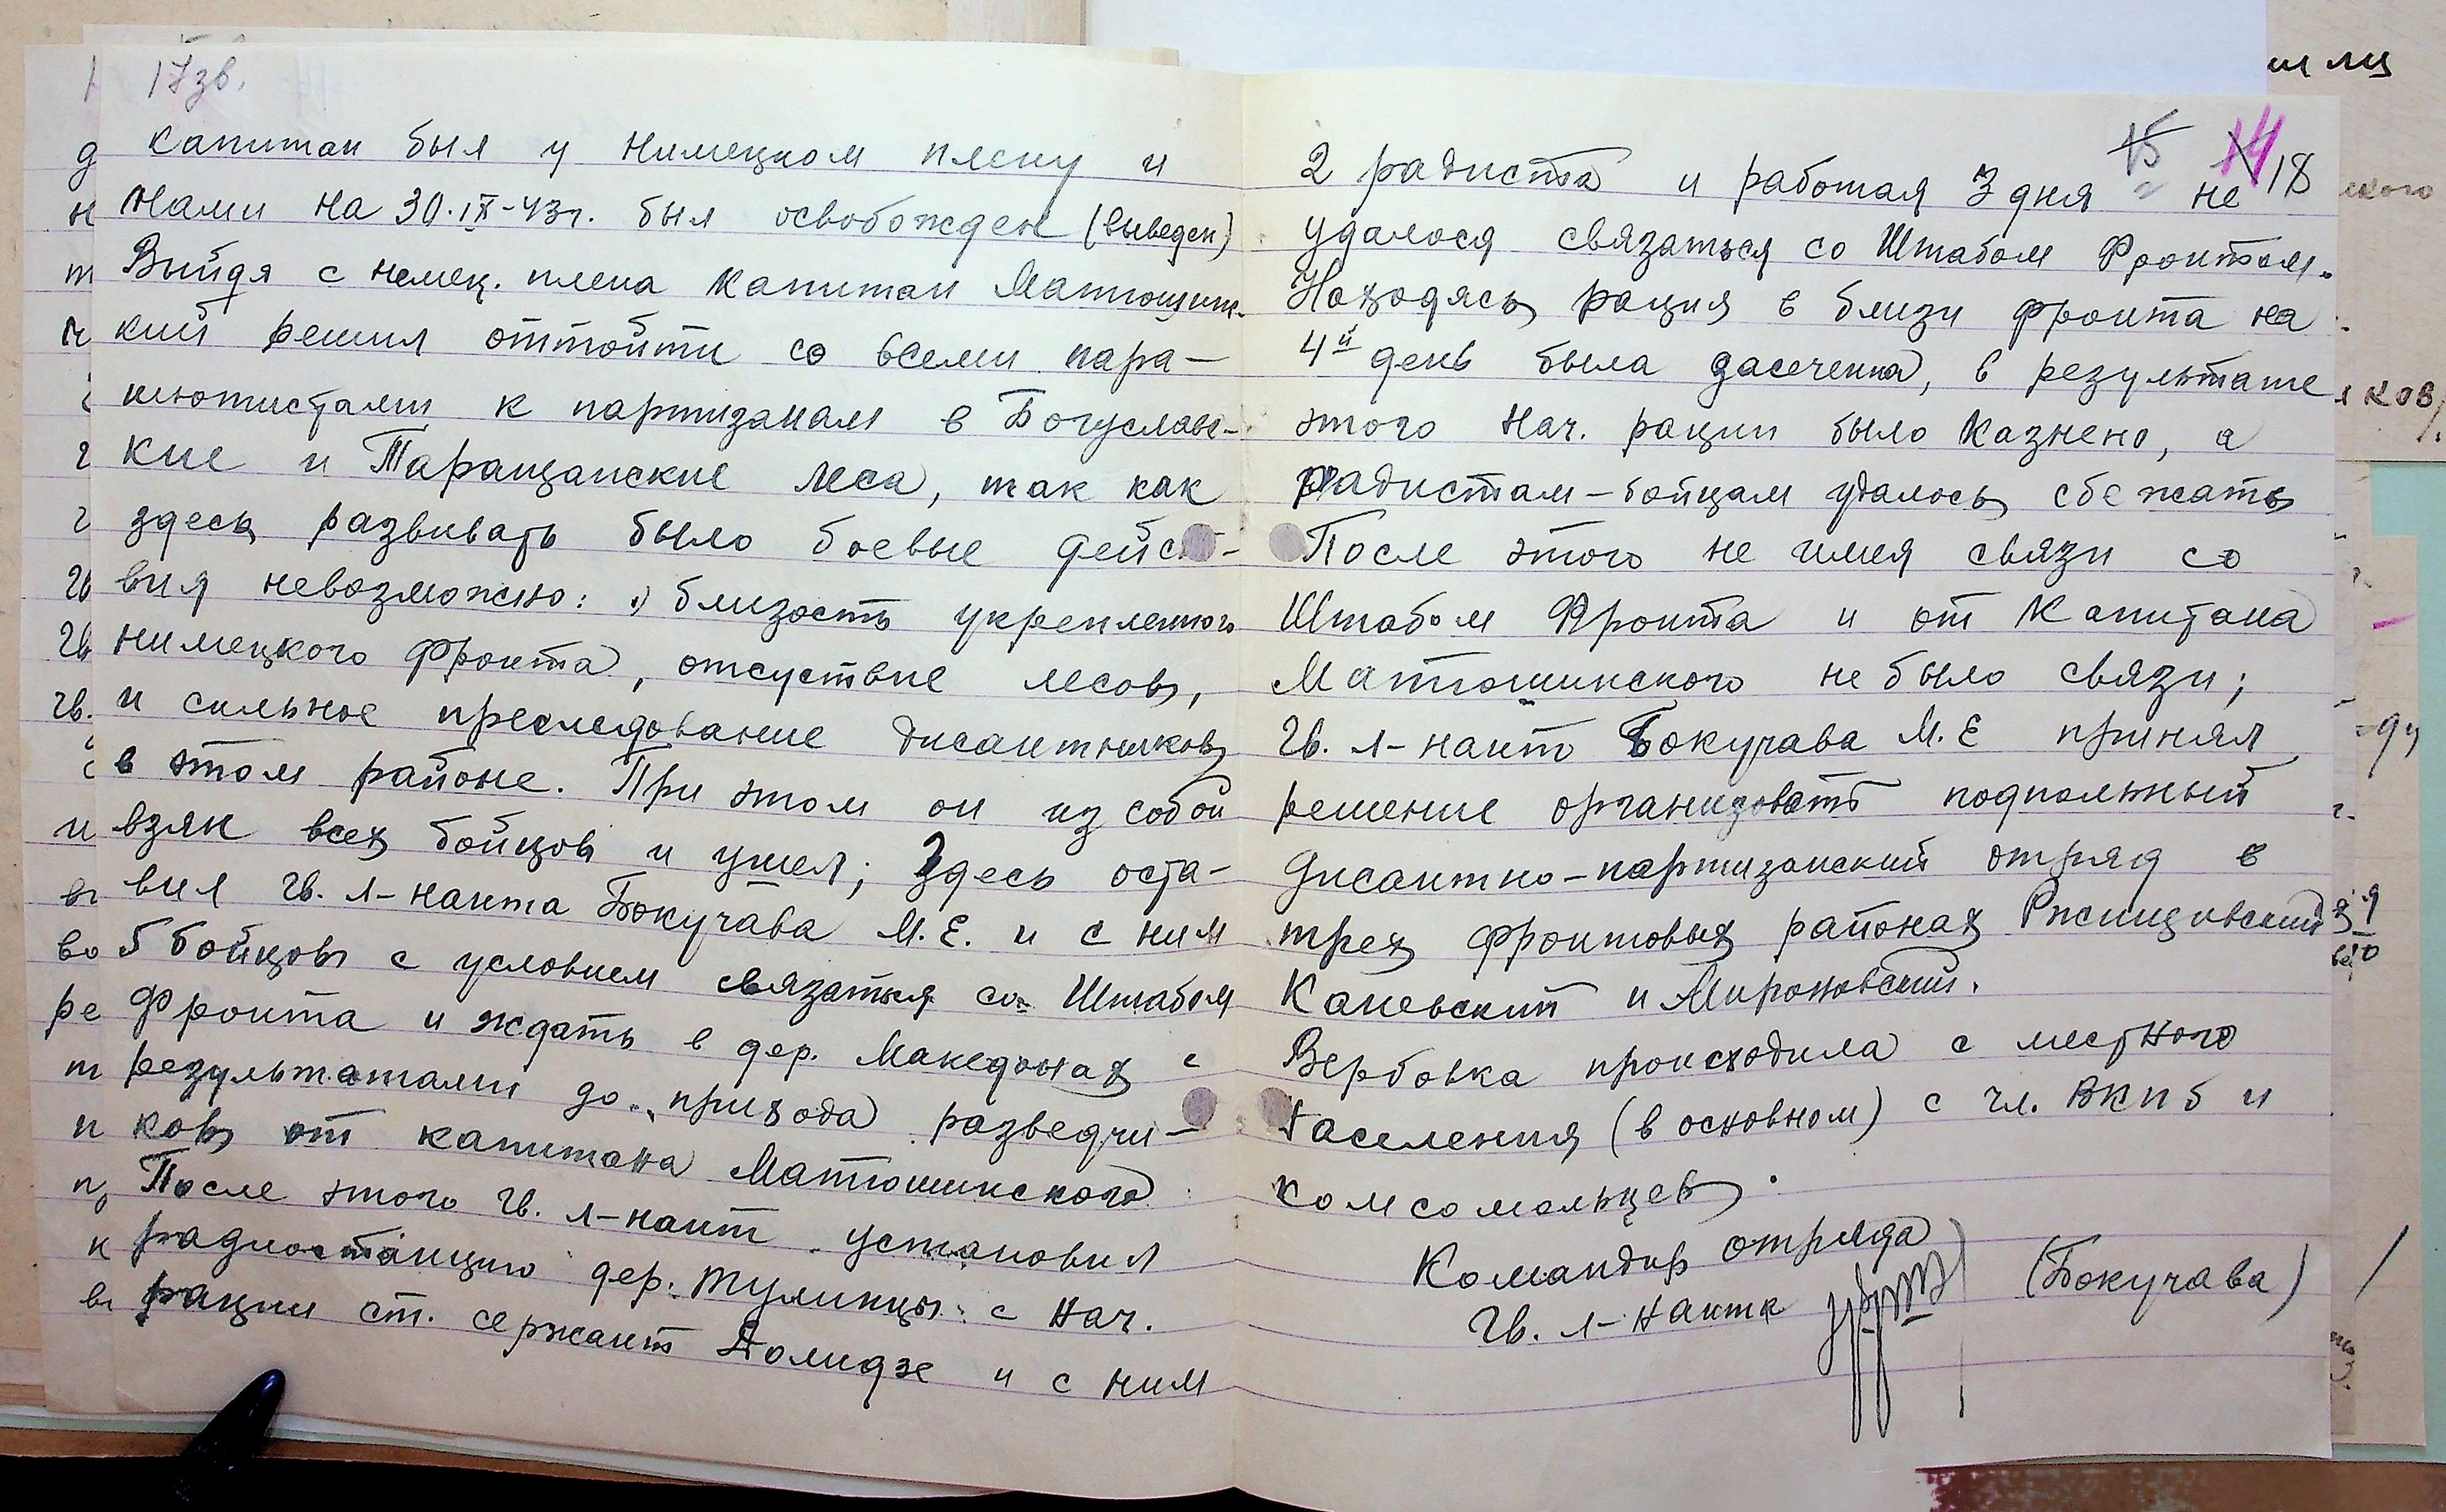 17зв.
капитан был у нимецком плену и
нами на 30.IX-43г. был освобожден (выведен)
Выйдя с немец. плена капитан Матюшин-
кий решил оттойти со всеми пара-
шютистами к партизанам в Богуславс-
кие и Таращанские леса, так как
здесь развивать было боевые дейст-
вия невозможно: близость укрепленного
нимецкого фронта, отсуствие лесов,
и сильное преследование дисантников
в этом районе. При этом он из собой
взял всех бойцов и ушел; Здесь оста-
вил гв. л-нанта Бокучава М.Е. и с ним
5 бойцов с условием связаться со Штабом
Фронта и ждать в дер. Македонах с
результатами до прихода разведчи-
ков от капитана Матюшинского.
После этого гв. л-нант установил
радиостанцию дер. Тулинцы с нач.
рации ст. сержант Долидзе и с ним
15 14 18
2 радиста и работая 3 дня не
удалося связаться со Штабом Фронтом.
Находясь рация в близи фронта на
4й день была засеченна, в результате
этого нач. рации было казнено, а
радистам-бойцам удалось сбежать
После этого не имея связи со
Штабом Фронта и от Капитана
Матюшинского не было связи;
Гв. л-нант Бокучава М.Е принял
решение организовать подпольный
дисантно-партизанский отряд в
трех фронтовых районах Ржищивский
Каневский и Мироновский.
Вербовка происходила с местного
населения (в основном) с чл. ВКПб и
комсомольцев.
Командир отряда
Гв. л-нанта (Бокучава)